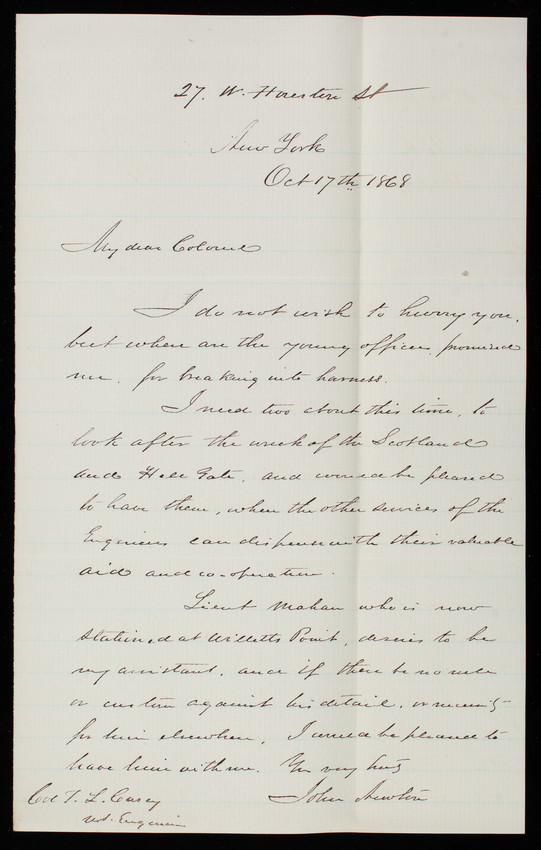 27. W. Houston St
New York
Oct 17th 1868
My dear Colonel
I do not wish to hurry you,
but where are the young officers, promised
me, for breaking into harness.
I need two about this time, to
look after the wreck of the Scotland
and Hell Gate, and would be pleased
to have them, when the other services of the
Engineers can dispense with their valuable
aid and co-operation.
Lieut Mahan who is now
stationed at Willetts Point, desires to be
my assistant, and if there be no rule
or custom against his detail, or necessity
for him elsewhere, I would be pleased to
have him with me. Yrs very truly
John Newton
Col T. L. Casey
U.S. Engineers